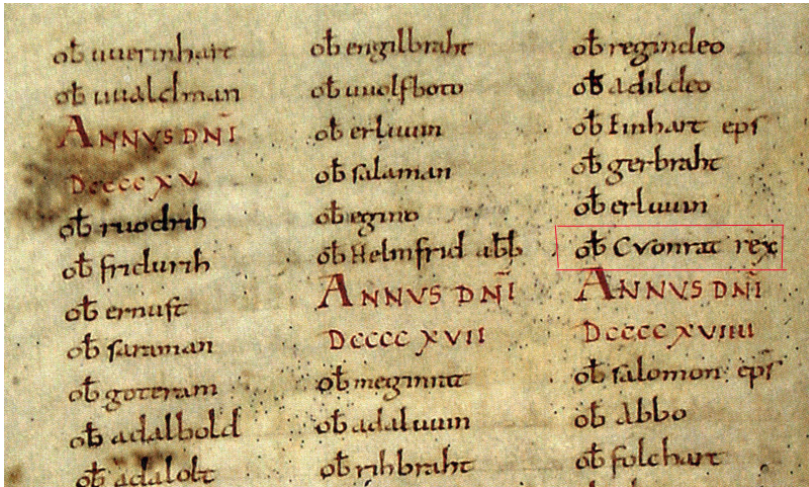 ob̄ uuerinhart
ob̄ uualdman
ANNVS DN̄I
DCCCC XV
ob̄ ruodrih
ob̄ fridurih
ob̄ ernust
ob̄ saraman
ob̄ goteram
ob̄ adalbold
ob̄ adalolt
ob̄ engilbraht
ob̄ uuolfboto
ob̄ erluuin
ob̄ salaman
ob̄ egino
ob̄ Helmfrid ab̄b
ANNVS DN̄I
DCCCC XVII
ob̄ meginrat
ob̄ adaluuin
ob̄ rihbraht
ob̄ regindeo
ob̄ adildeo
ob̄ Einhart ep̄s
ob̄ gerbraht
ob̄ erluuin
ob̄ Cvonrat rex
ANNVS DN̄I
DCCCC XVIIII
ob̄ salomon ep̄s
ob̄ Abbo
ob̄ folchart